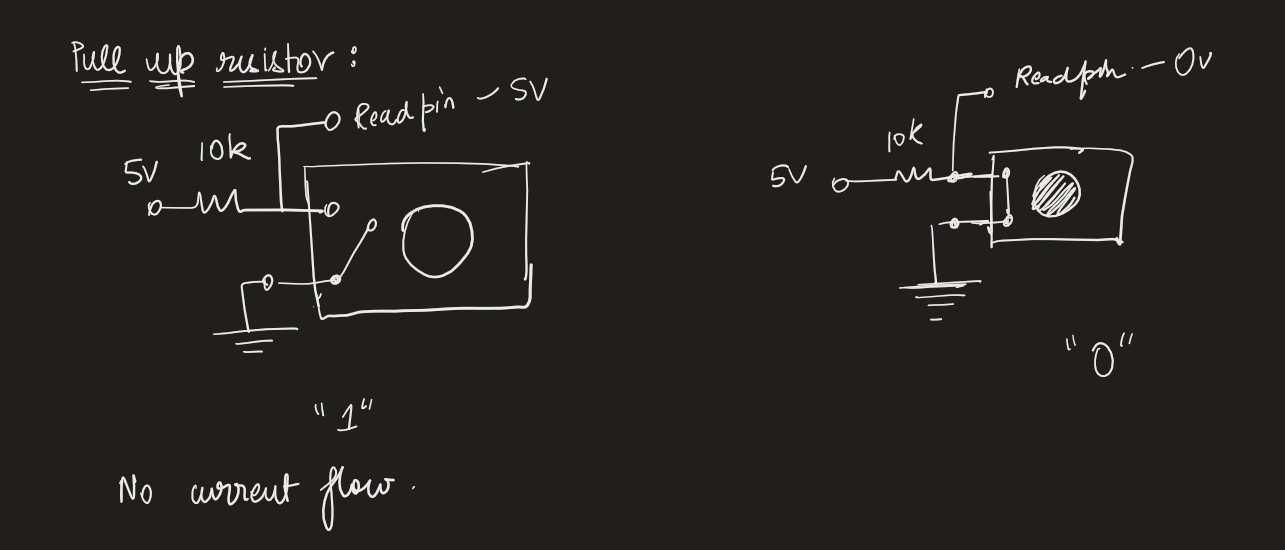 Pull up resistor:
Readpin - 5V
10k
5V
"1"
No current flow.
Readpin - 0v
10k
5V
"0"